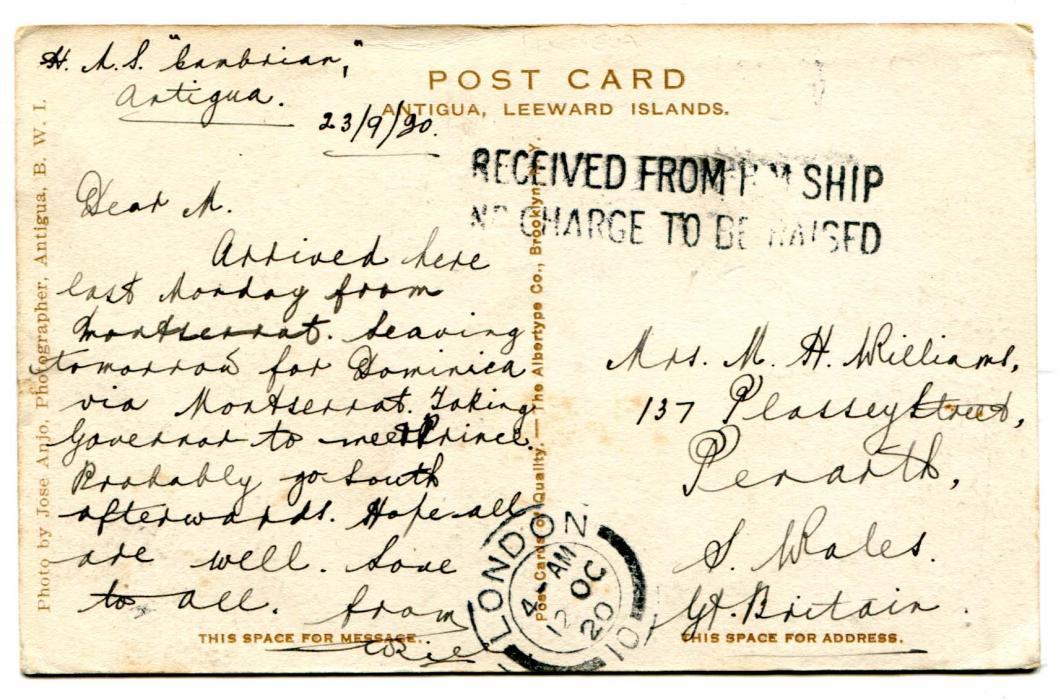 H. M. S. "Cambrian,"
Antigua.
23/9/20.
POST CARD
ANTIGUA, LEEWARD ISLANDS.
RECEIVED FROM H M SHIP
NO CHARGE TO BE RAISED
Dear M.
Arrived here
last Monday from
Montserrat. Leaving
tomorrow for Dominica
via Montserrat. Taking
Governor to meet Prince.
Probably go South
afterwards. Hope all
are well. Love
to all. from
Mrs. M. H. Williams,
137 Plassey Street,
Penarth,
S. Wales.
Gt. Britain.
LONDON
4 - AM
12 OC
20
10
THIS SPACE FOR MESSAGE.
THIS SPACE FOR ADDRESS.
Photo by Jose Anjo, Photographer, Antigua, B. W. I.
Post Cards of Quality. — The Albertype Co., Brooklyn, N. Y.